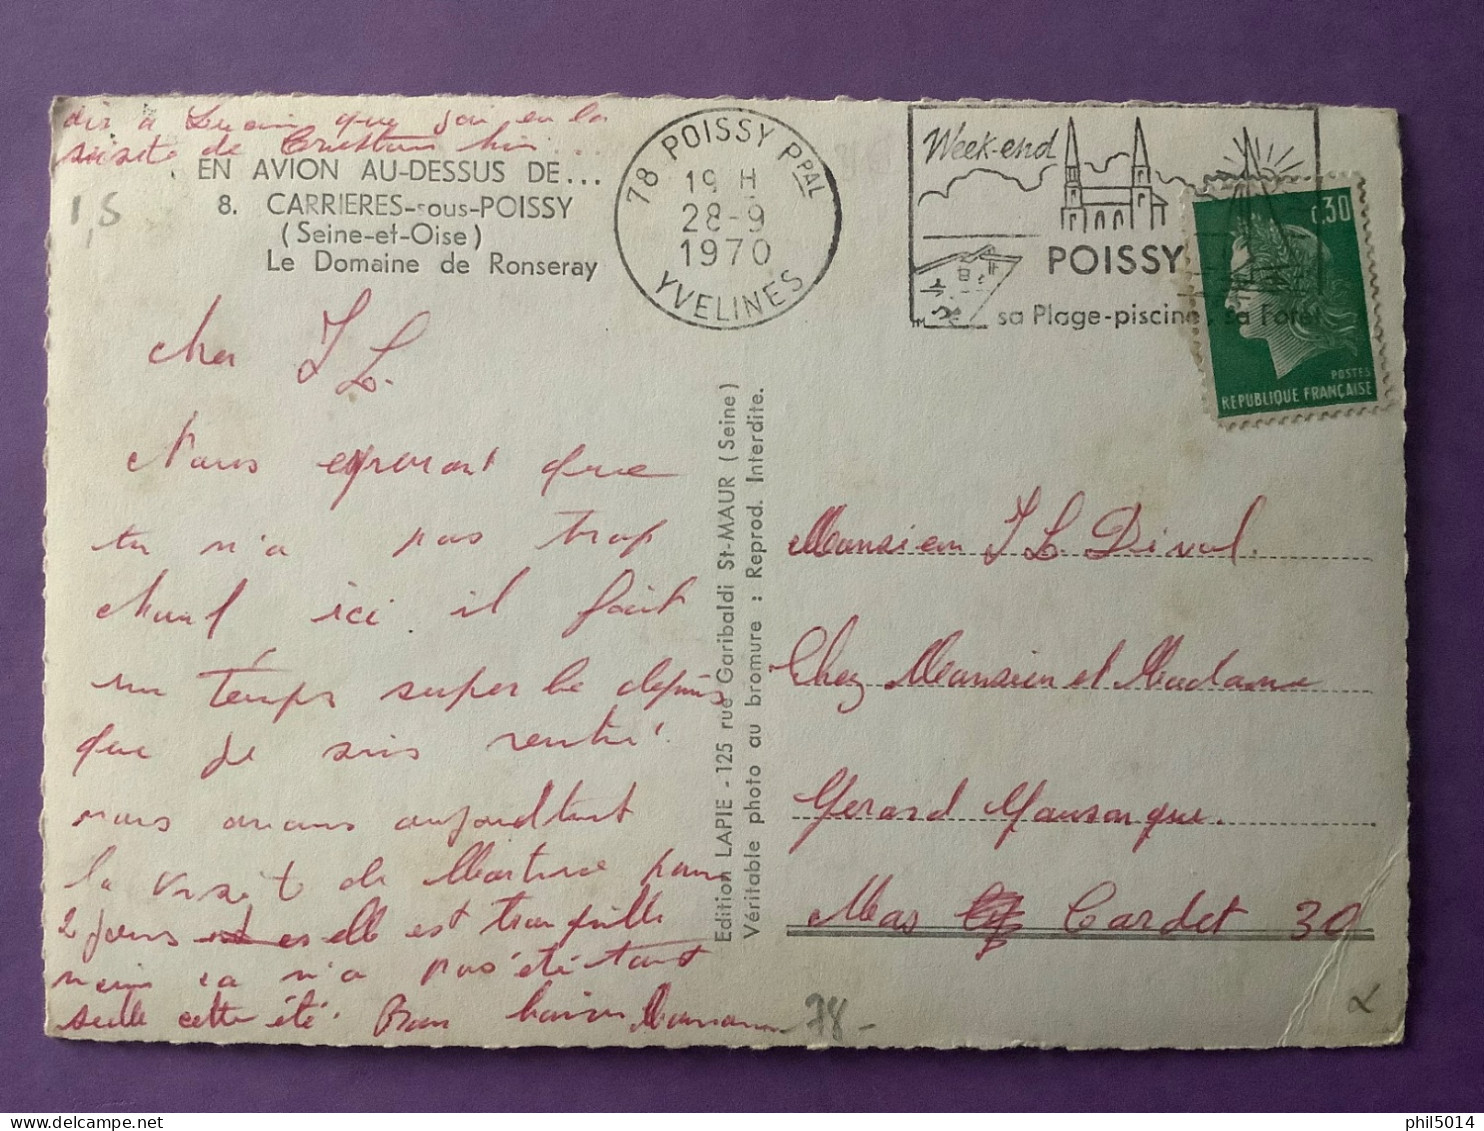 dis à que jai eu la
visite de
EN AVION AU-DESSUS DE...
8. CARRIERES-sous-POISSY
(Seine-et-Oise)
Le Domaine de Ronseray
1,5
cher J L.
Nous esperont que
tu n'a pas trop
chauf ici il fait
un temps superbe depuis
que je suis rentré.
nous avons aujourd'hui
la visite de Martine pour
2 jours elle est tranquille
ca n'a pas été tout
seule cette été. Bon Maman
78 POISSY PPAL
19 H
28-9
1970
YVELINES
Week-end
POISSY
sa Plage-piscine, sa Forêt
0,30
POSTES
REPUBLIQUE FRANÇAISE
Edition LAPIE - 125 rue Garibaldi St-MAUR (Seine)
Véritable photo au bromure : Reprod. Interdite.
Monsieur J L Dival.
Chez Monsieur et Madame
Gérard
Mas Cardet 30
78-
phil5014